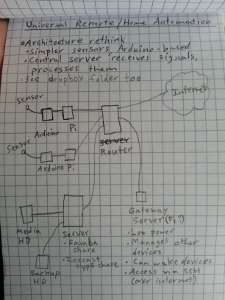 Universal Remote/Home Automation
• Architecture rethink
• Simpler sensors, Arduino-based
• Central server receives signals,
processes them
• See dropbox folder too
Sensor
Arduino
Pi
Sensor
Arduino Pi
server
Router
Internet
Media
HD
Server
• Samba
share
• Icecast
type share
Backup
HD
Gateway
Server (Pi?)
• Low power
• Manages other
devices
• Can wake devices
• Access via SSH
(over internet)